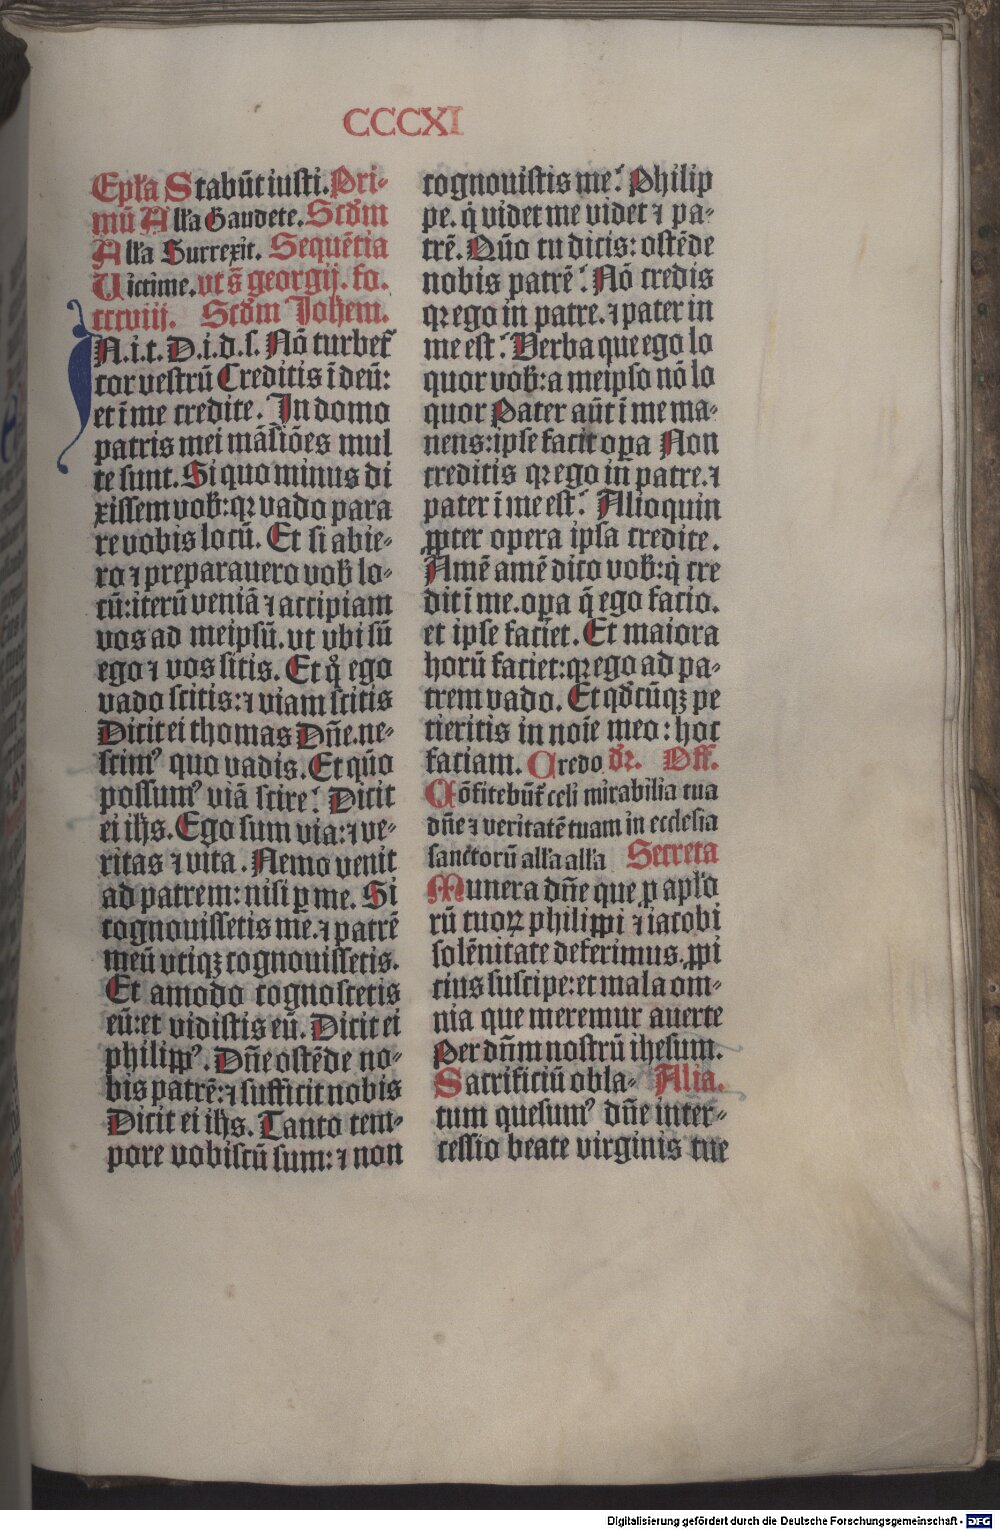 CCCXI
Ep̄l̄a Stabūt iusti. Pri-
mū All̄a Gaudete. Scd̄m
All̄a Surrexit. Sequētia
Uictime. vt s̄ georgij. fo.
cccviij. Scd̄m Joh̄em.
N. i. t. D. i. d. s. Nō turbet᷑
cor vestrū Creditis ī deū:
et ī me credite. In domo
patris mei māsiōes mul
te sunt. Si quo minus di
xissem vob̄: qꝛ vado para
re vobis locū. Et si abie-
ro ⁊ preparauero vob̄ lo-
cū: iterū veniā ⁊ accipiam
vos ad meipsū. vt vbi sū
ego ⁊ vos sitis. Et q̊ ego
vado scitis: ⁊ viam scitis
Dicit ei thomas Dn̄e. ne-
scimꝰ quo vadis. Et quō
possumꝰ viā scire? Dicit
ei ih̄s. Ego sum via: ⁊ ve-
ritas ⁊ vita. Nemo venit
ad patrem: nisi ꝑ me. Si
cognouissetis me. ⁊ patrē
meū vtiqꝫ cognouissetis.
Et amodo cognoscetis
eū: et vidistis eū. Dicit ei
philippꝰ. Dn̄e ostēde no-
bis patrē: ⁊ sufficit nobis
Dicit ei ih̄s. Tanto tem-
pore vobiscū sum: ⁊ non
cognouistis me? Philip
pe. q̇ videt me videt ⁊ pa-
trē. Quō tu dicis: ostēde
nobis patrē? Nō credis
qꝛ ego in patre. ⁊ pater in
me est? Verba que ego lo
quor vob̄: a meipso nō lo
quor Pater aūt ī me ma-
nens: ipse facit oꝑa Non
creditis qꝛ ego in patre. ⁊
pater ī me est? Alioquin
ꝓpter opera ipsa credite.
Amē amē dico vob̄: q̇ cre
dit ī me. oꝑa q̄ ego facio.
et ipse faciet. Et maiora
horū faciet: qꝛ ego ad pa-
trem vado. Et qd̄cūqꝫ pe
tieritis in noīe meo: hoc
faciam. Credo dr̄. Off.
Cōfitebūt᷑ celi mirabilia tua
dn̄e ⁊ veritatē tuam in ecclesia
sanctorū all̄a all̄a Secreta
Munera dn̄e que ꝓ apl̄o
rū tuoꝝ philippi ⁊ iacobi
solēnitate deferimus. ꝓpi
cius suscipe: et mala om-
nia que meremur auerte
Per dn̄m nostrū ihesum.
Sacrificiū obla- Alia.
tum quesumꝰ dn̄e inter-
cessio beate virginis tue
Digitalisierung gefördert durch die Deutsche Forschungsgemeinschaft - DFG